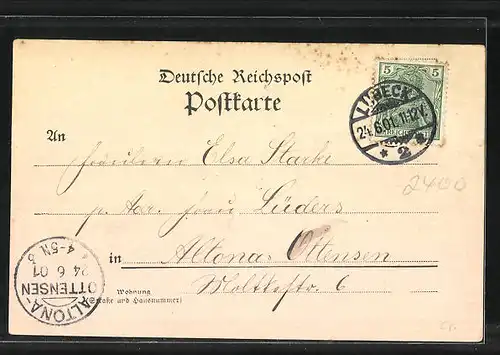 Deutsche Reichspost
Postkarte
5 5
LÜBECK
24.6.01. 11-12V.
* 2 *
An
Fräulein Elsa Starke
p. Adr. Frau Lüders
in Altona-Ottensen
Wohnung
(Straße und Hausnummer)
Moltkestr. 6
2400
ALTONA-
OTTENSEN
24 6 01
4-5N